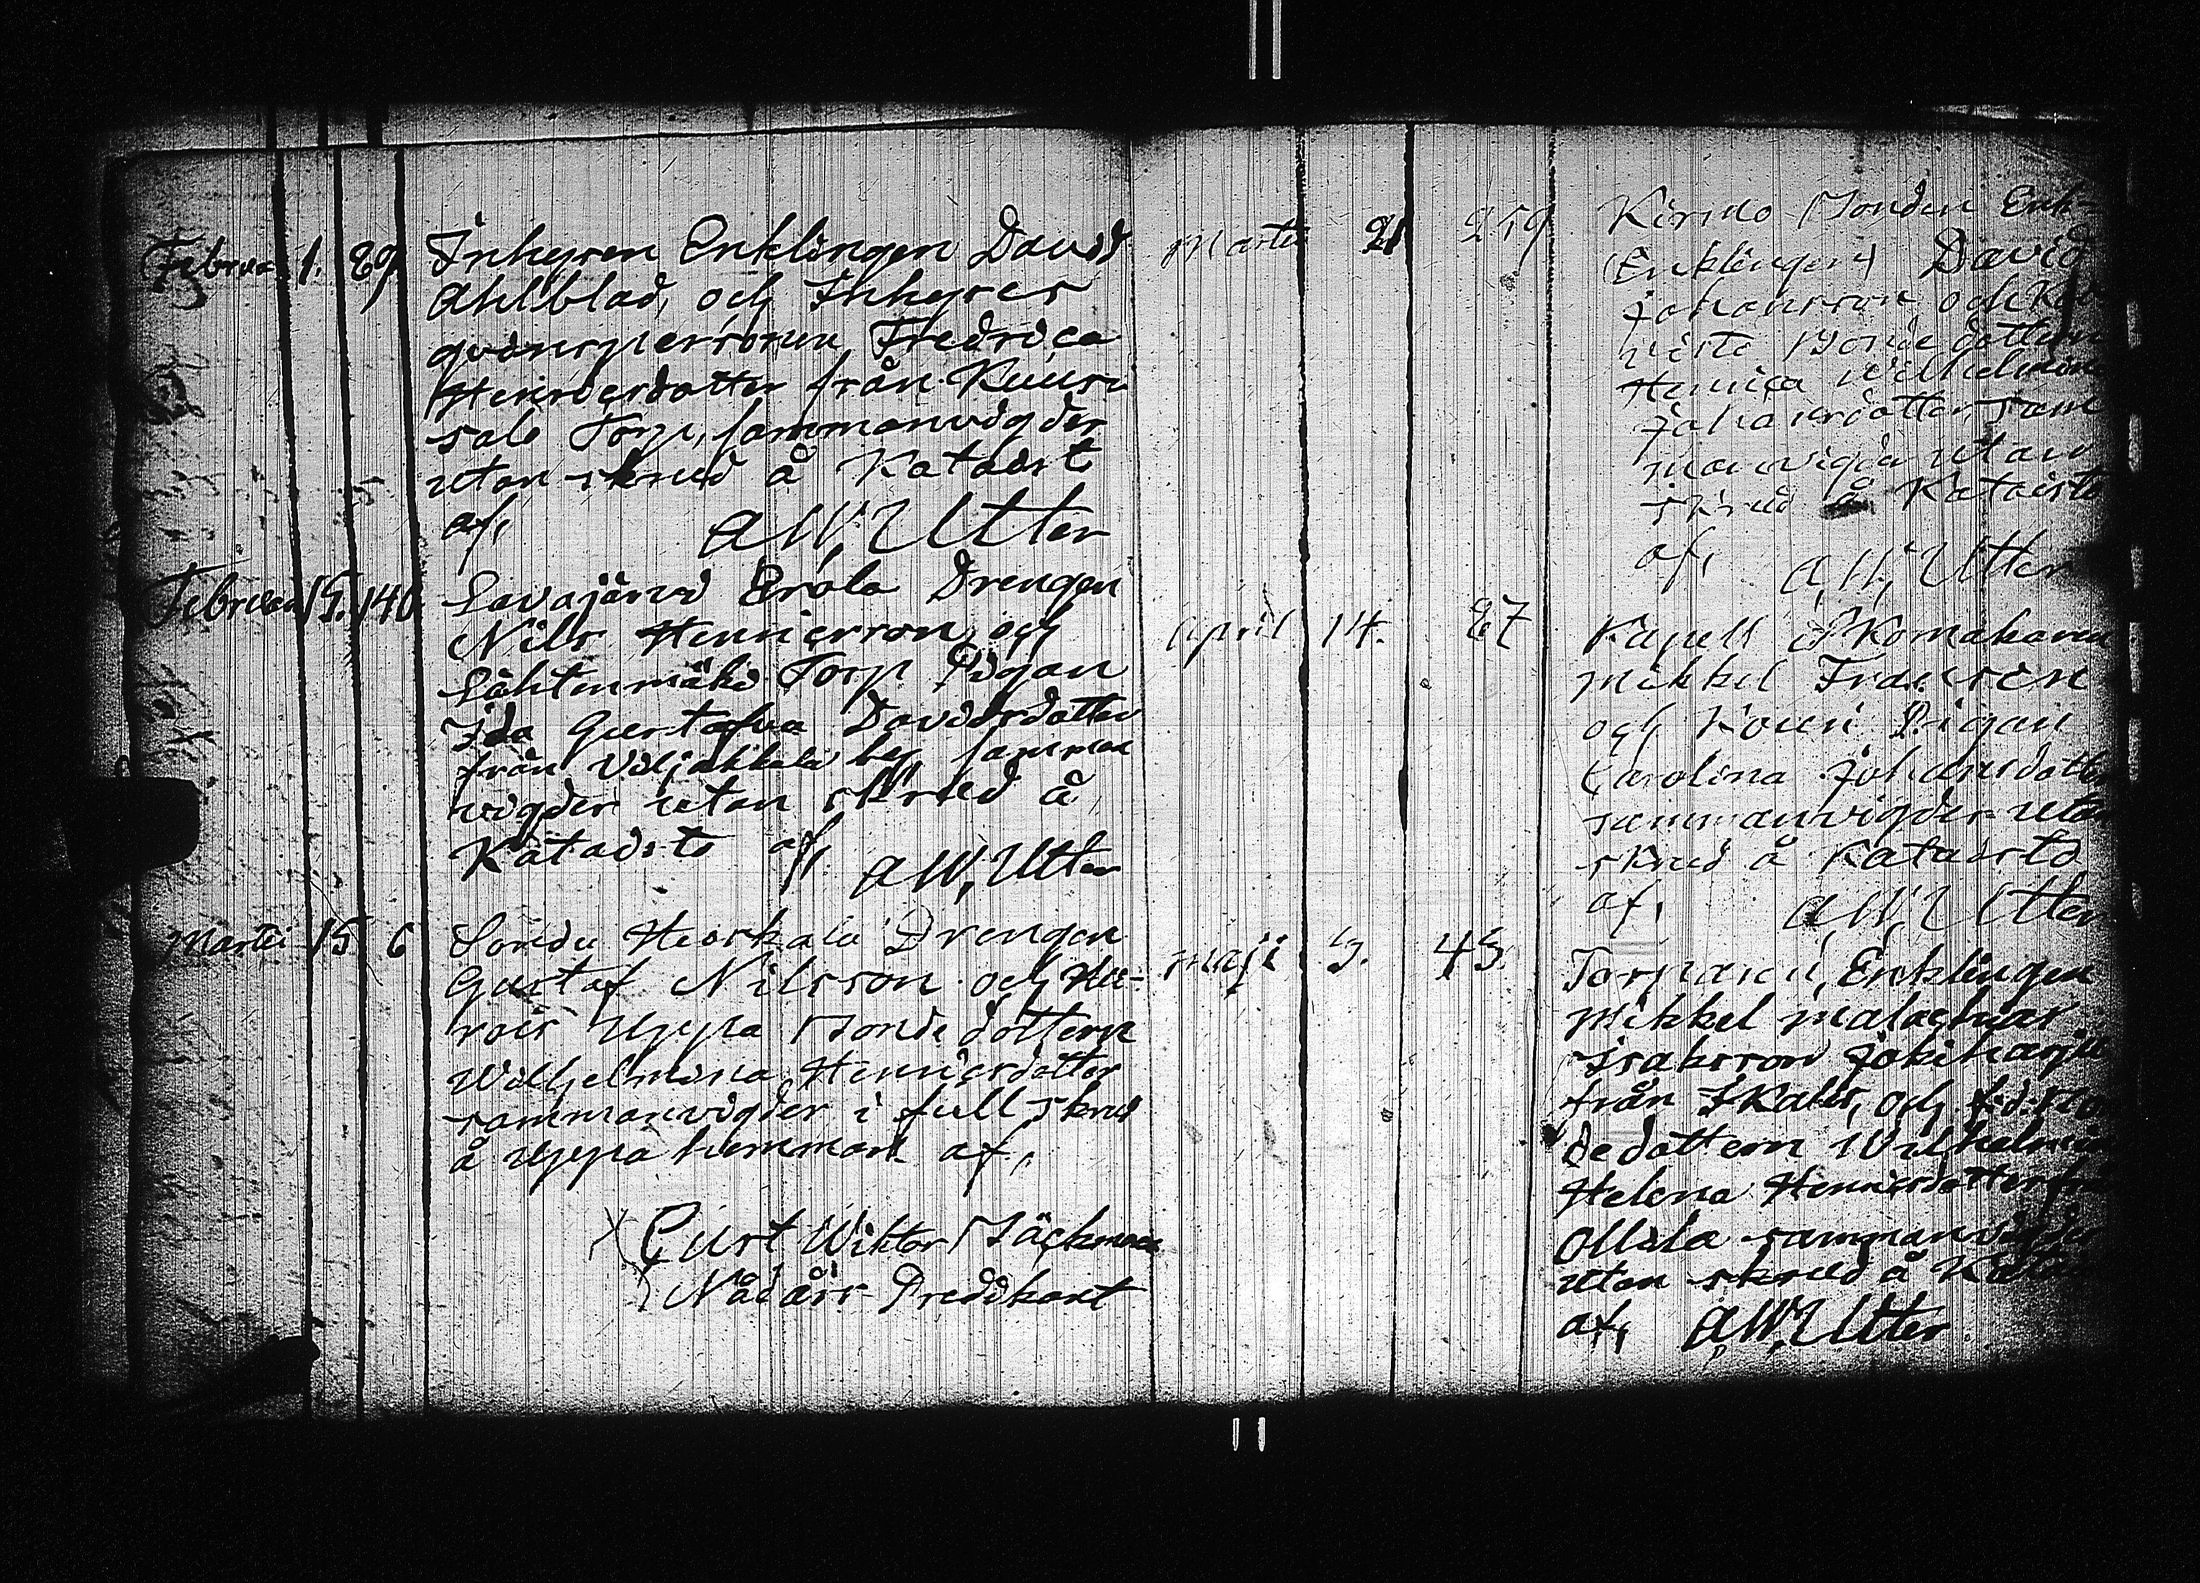 Februari 1. 89 Inhysen Enklingen David
Ahlblad, och Inhyses
qvinspersonen Fredrica
Henricsdotter från Kuusi
salo Torp, sammanvigder
utan skrud å Kataisto
af, A W, Utter
Februari 15. 140 Lavajärvi Erola Drengen
Nils Henricsson och
Lähtenmäki Torp Pigan
Ida Gustafva Davidsdotter
från Viljakkala by, samman
vigder utan skrud å
Kataisto af, A W, Utter
Martii 15 6 Drengen
Gustaf Nilsson och
Uppa Bondedottern
Wilhelmina Henricsdotter
sammanvigder i full skrud
å Uppa hemman af,
Gust Wiktor Bäckman
Nådårs Predikant
Martii 21 259 Kirmo Bonden Enk-
(Enklingen) David
Johansson och
Bondedottern
Henrica Wilhelmina
Johansdotter, sam
manvigda utan
skrud å Kataisto
af, A, W, Utter
April 14. 87 Kapell
Mikkel Fransén
och Kouri Pigan
Carolina Johansdotter
sammanvigder utan
skrud å Kataisto
af, A, W, Utter
Maji 3. 43. Torparen, Enklingen
Mikkel Malachias
Isaksson Jokiharju
från Ikalis, och f.d. Bon
dedottern Wilhelmina
Helena Henricsdotter från
Ollila sammanvigder
utan skrud å Kataisto
af, A, W, Utter